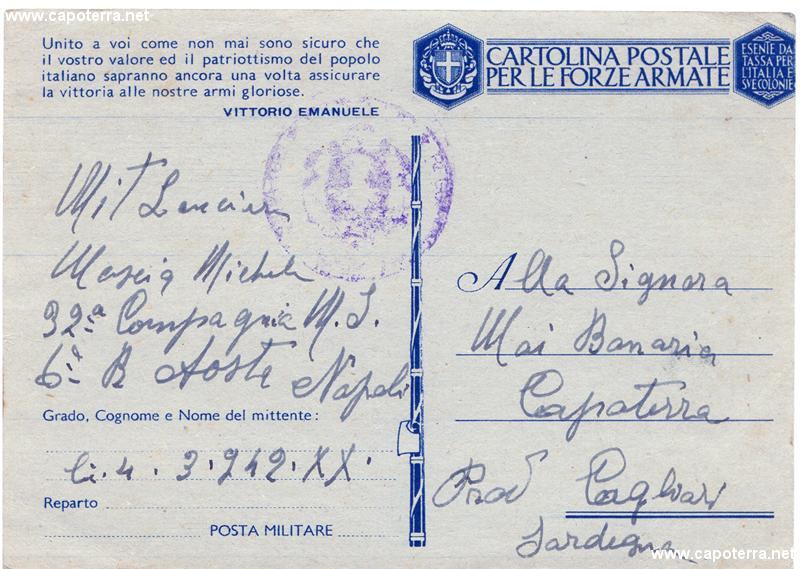 www.capoterra.net
Unito a voi come non mai sono sicuro che
il vostro valore ed il patriottismo del popolo
italiano sapranno ancora una volta assicurare
la vittoria alle nostre armi gloriose.
VITTORIO EMANUELE
CARTOLINA POSTALE
PER LE FORZE ARMATE
ESENTE DA
TASSA PER
L'ITALIA E
SVE COLONIE
Mit
Michele
32ª Compagnia M.S.
6º B Aosta Napoli
Grado, Cognome e Nome del mittente:
li 4.3.942.XX.
Reparto
POSTA MILITARE
Alla Signora
Mai Bonaria
Capoterra
Prov Cagliari
Sardegna
www.capoterra.net